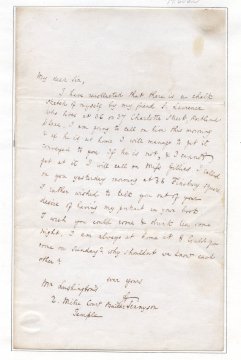 My dear Sir,
I have recollected that there is a chalk
sketch of myself by my friend S. Laurence
who lives at 36 or 37 Charlotte Street Portland
Place. I am going to call on him this morning
& if he is at home I will manage to get it
conveyed to you. If he is not, & I cannot
get at it I will call on Miss Gillies. I called
on you yesterday morning at 36 Finsbury Square
I rather wished to talk you out of your
desire of having my portrait in your book
I wish you could come & drink tea some
night. I am always at home at 6. Couldn't you
come on Sunday? why shouldn't we know each
other?
ever yours
Mr Lushington's
2. Mitre Court Buildgs Tennyson
Temple